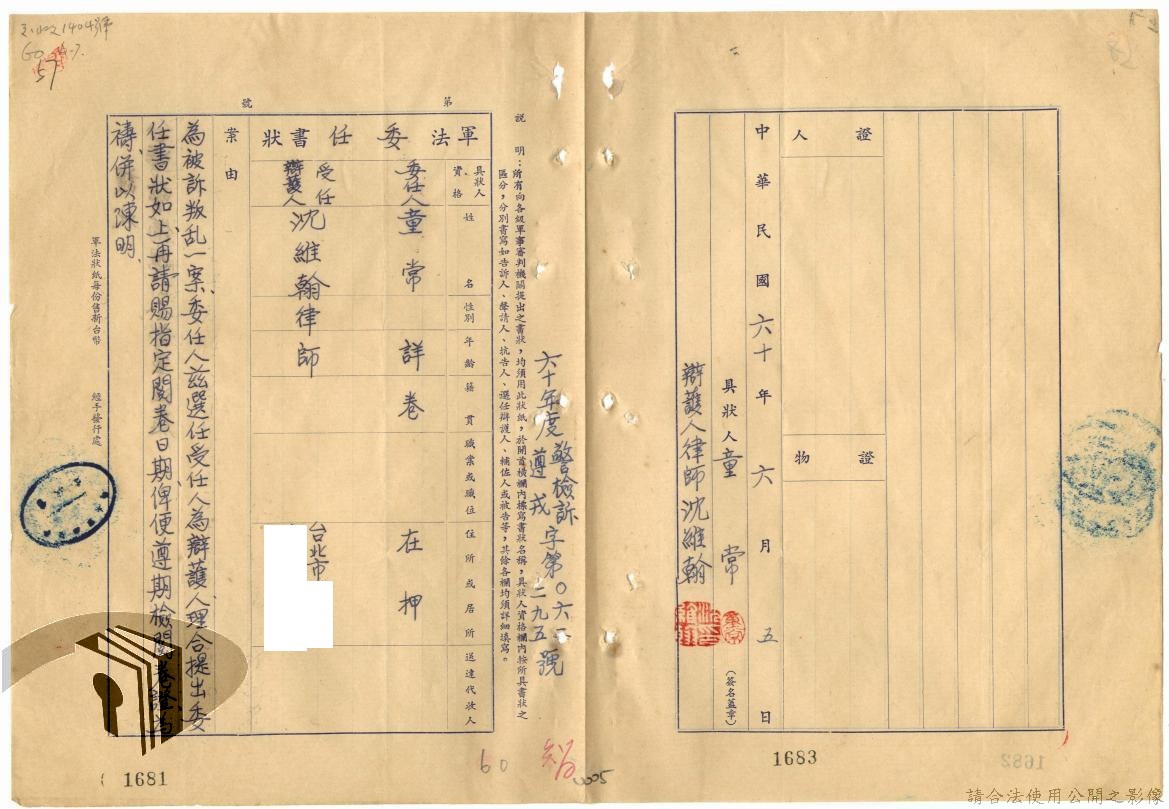 說明：所有向各級軍事審判機關提出之書狀，均須用此狀紙，於開首橫欄內標寫書狀名稱，具狀人資格欄內按所具書狀之
區分，分別書寫如告訴人、聲請人、抗告人、選任辯護人、輔佐人或被告等，其餘各欄均須詳細填寫。
六十年度警檢訴字第〇六一號
遵戎 二九五
第 號
軍法委任書狀
具狀人資格 姓名 性別 年齡 籍貫 職業或職位 住所或居所 送達代收人
委任人童常 詳卷 在押
受任辯護人 沈維翰律師 台北市
案由
為被訴叛乱一案，委任人茲選任受任人為辯護人，理合提出委
任書狀如上，再請賜指定閱卷日期，俾便遵期檢閱卷證為
禱，併以陳明。
軍法狀紙每份售新台幣 經手發行處
57
1681
60
證人
物證
中華民國六十年六月五日
具狀人童常 (簽名蓋章)
辯護人律師沈維翰
1683
1682
請合法使用公開之影像